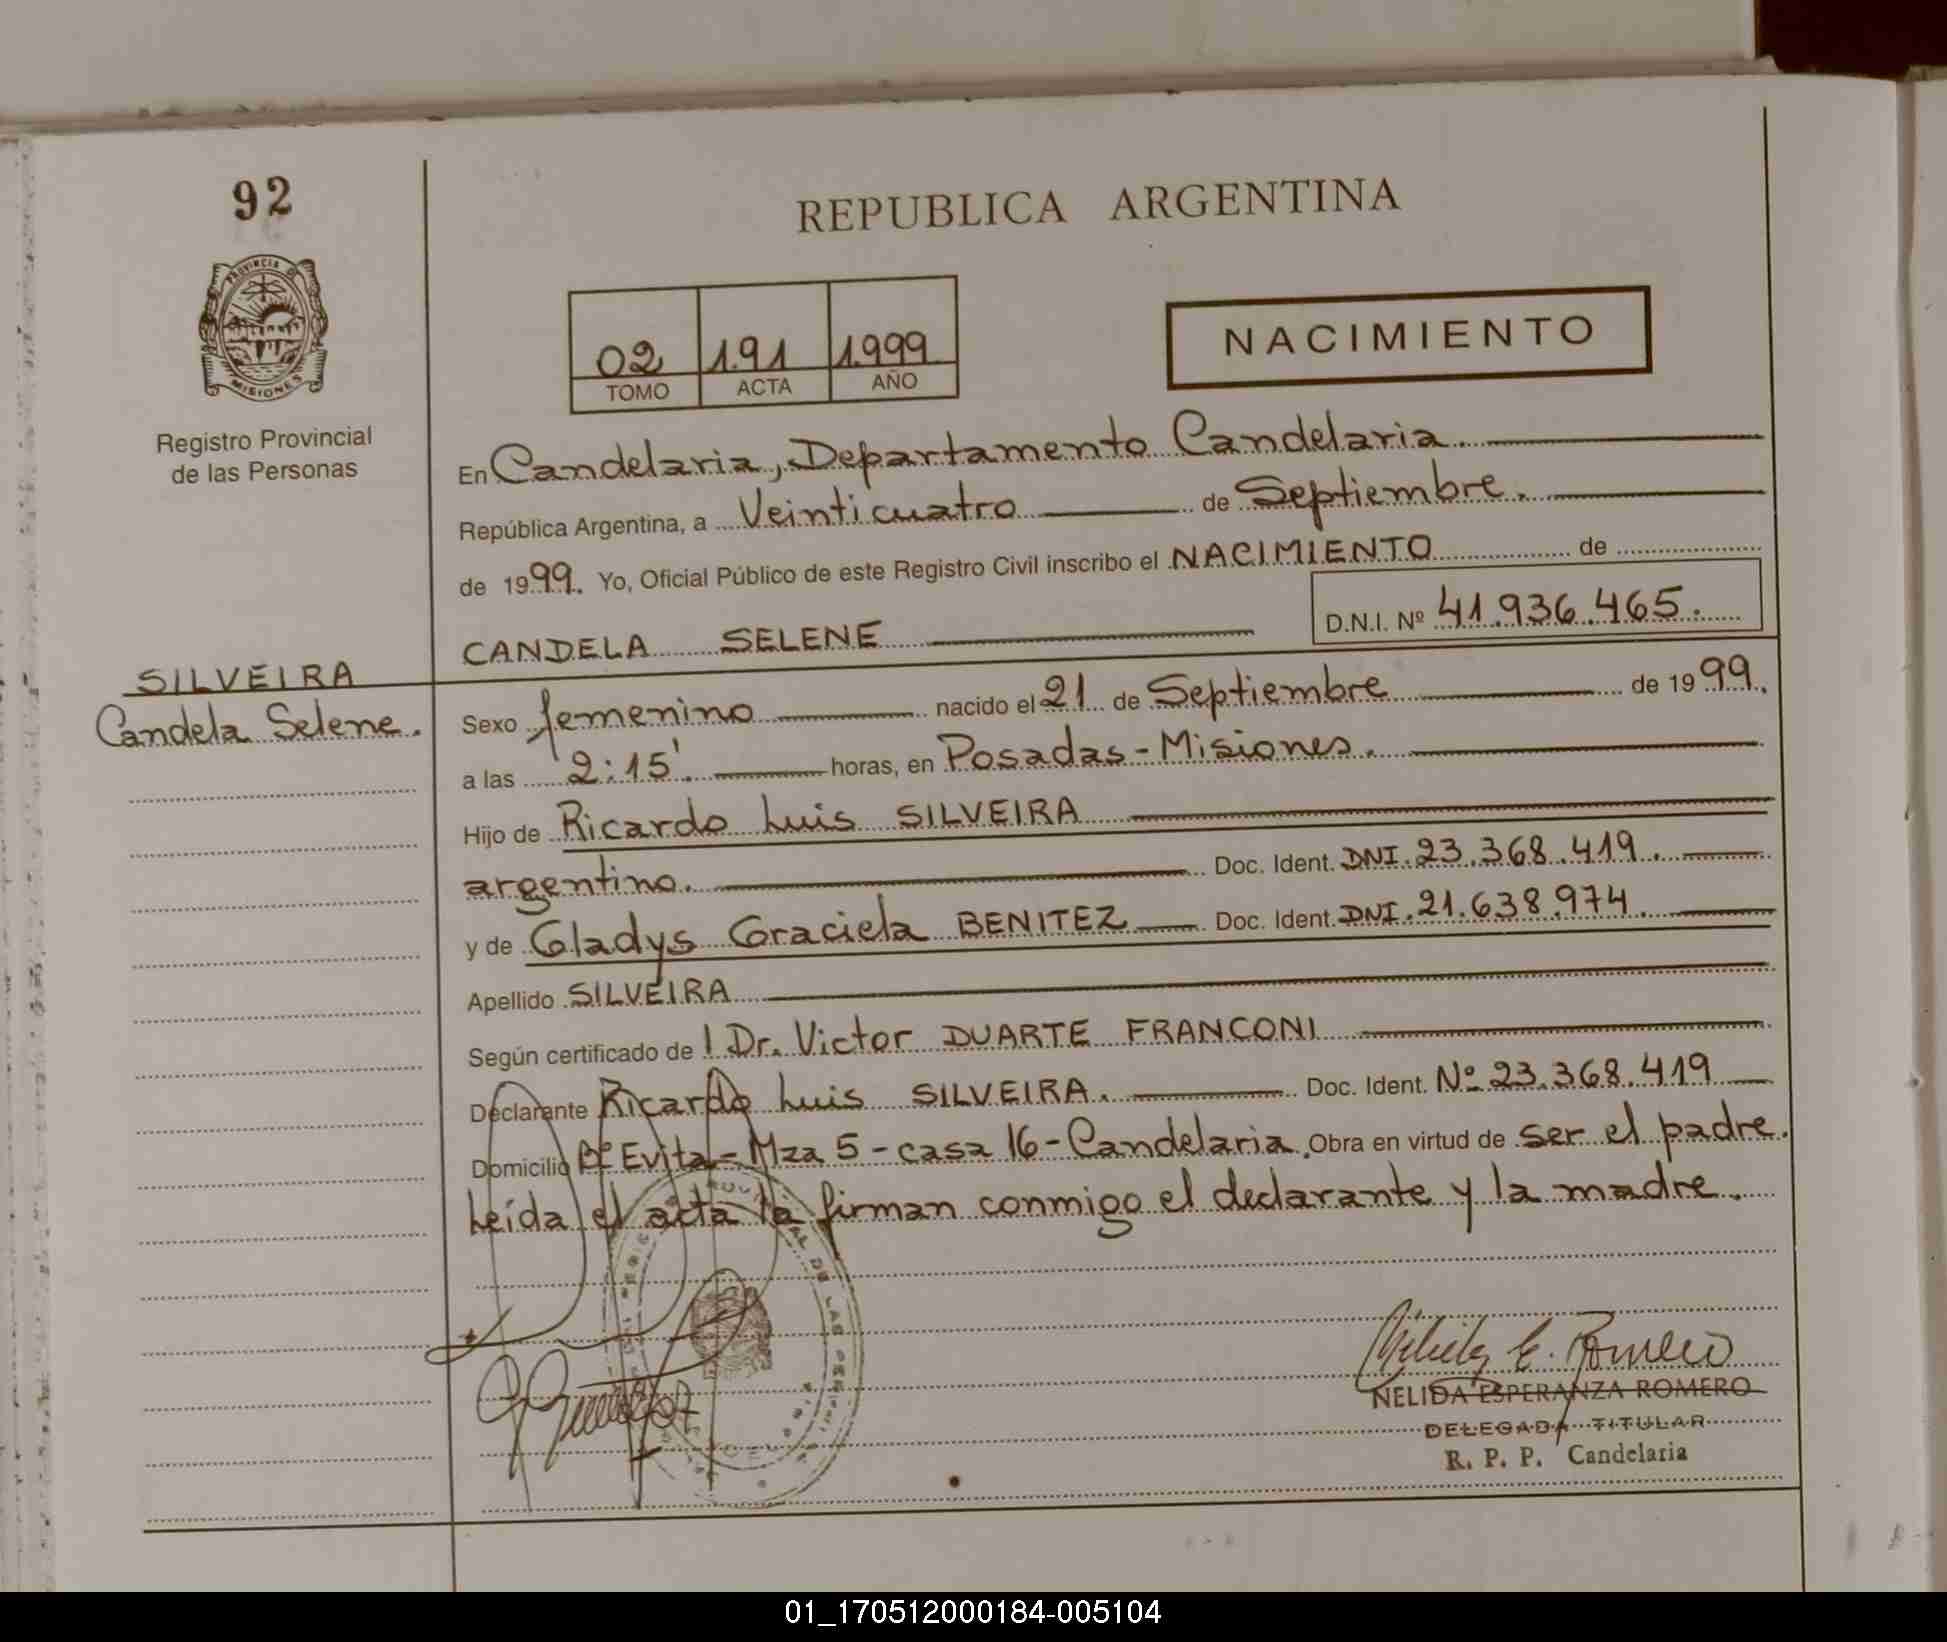 92
REPUBLICA ARGENTINA
PROVINCIA DE
MISIONES
Registro Provincial
de las Personas
02 191 1.999
TOMO ACTA AÑO
NACIMIENTO
En Candelaria, Departamento Candelaria
República Argentina, a Veinticuatro de Septiembre.
de 1999. Yo, Oficial Público de este Registro Civil inscribo el NACIMIENTO de
CANDELA SELENE D.N.I. Nº 41.936.465.
SILVEIRA
Candela Selene.
Sexo femenino nacido el 21 de Septiembre de 1999.
a las 2:15'. horas, en Posadas-Misiones.
Hijo de Ricardo Luis SILVEIRA
argentino. Doc. Ident. DNI.23.368.419.
y de Gladys Graciela BENITEZ Doc. Ident. DNI.21.638.974.
Apellido SILVEIRA
Según certificado de l Dr. Victor DUARTE FRANCONI
Declarante Ricardo Luis SILVEIRA. Doc. Ident. Nº 23.368.419
Domicilio Bº Evita-Mza 5-casa 16-Candelaria. Obra en virtud de ser el padre.
Leída el acta la firman conmigo el declarante y la madre.
NELIDA ESPERANZA ROMERO
DELEGADA TITULAR
R. P. P. Candelaria
01_170512000184-005104